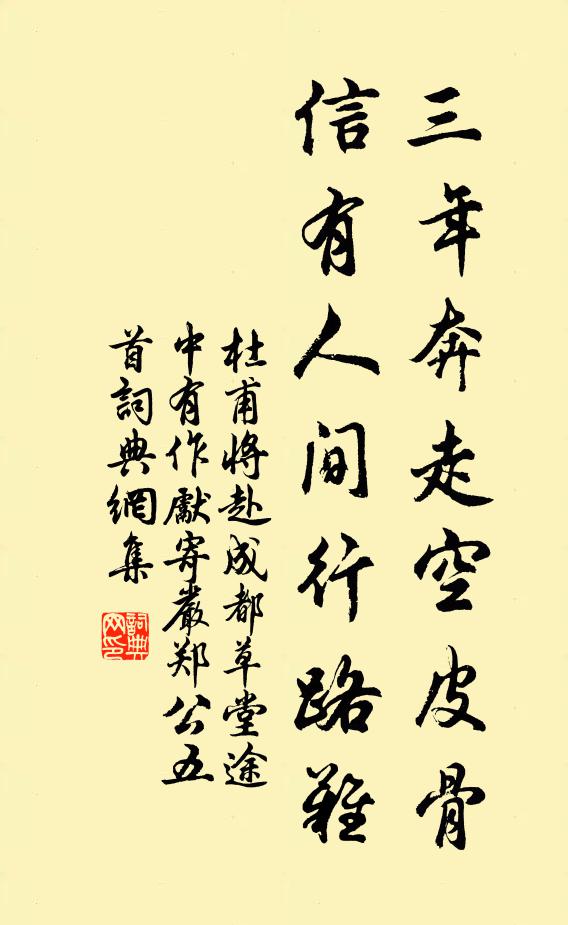 三年奔走空皮骨
信有人间行路難
杜甫將赴成都草堂途
中有作獻寄嚴郑公五
首詞典網集
詞典
网印